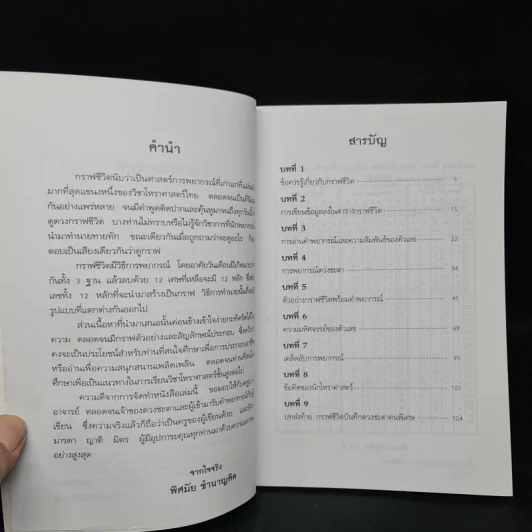 คำนำ
กราฟชีวิตนับว่าเป็นศาสตร์การพยากรณ์ที่เก่าแก่ที่แม่นยำ
มากที่สุดแขนงหนึ่งของวิชาโหราศาสตร์ไทย ตลอดจนเป็นที่นิยม
กันอย่างแพร่หลาย จนมีคำพูดติดปากและคุ้นหูมาจนถึงทุกวันนี้ว่า
ดูดวงกราฟชีวิต บางท่านไม่ทราบหรือไม่รู้จักวิธีการที่นักพยากรณ์
นำมาทำนายทายทัก ขณะเดียวกันเมื่อถูกถามว่าจะดูอะไร ก็จะ
ตอบเป็นเสียงเดียวกันว่าดูกราฟ
กราฟชีวิตมีวิธีการพยากรณ์ โดยอาศัยวันเดือนปีเกิดมาบวก
กันทั้ง 3 ฐาน แล้วลบด้วย 12 เศษที่เหลือจะมี 12 หลัก ซึ่ง
เลขทั้ง 12 หลักที่จะนำมาสร้างเป็นกราฟ วิธีการทำนายนั้นก็จะมี
รูปแบบที่แตกต่างกันออกไป
ส่วนเนื้อหาที่นำมาเสนอนั้นค่อนข้างเข้าใจง่ายกะทัดรัดได้ใจ
ความ ตลอดจนมีกราฟตัวอย่างและสัญลักษณ์ประกอบ ซึ่งหวังว่า
คงจะเป็นประโยชน์สำหรับท่านที่สนใจศึกษาเพื่อการประกอบอาชีพ
หรืออ่านเพื่อความสนุกสนานเพลิดเพลิน ตลอดจนท่านที่สนใจ
ศึกษาเพื่อเป็นแนวทางในการเรียนวิชาโหราศาสตร์ชั้นสูงต่อไป
ความดีจากการจัดทำหนังสือเล่มนี้ ขอมอบให้กับครูบา
อาจารย์ ตลอดจนเจ้าของดวงชะตาและผู้เข้ามารับคำพยากรณ์กับผู้
เขียน ซึ่งความจริงแล้วก็ถือว่าเป็นครูของผู้เขียนด้วย และบิดา
มารดา ญาติ มิตร ผู้มีอุปการะคุณทุกท่านมาด้วยความเคารพ
อย่างสูงสุด
จากใจจริง
พิศมัย ชำนาญคิด
สารบัญ
บทที่ 1
ข้อควรรู้เกี่ยวกับกราฟชีวิต 9
บทที่ 2
การเขียนข้อมูลลงในตารางกราฟชีวิต 15
บทที่ 3
การอ่านคำพยากรณ์และความสัมพันธ์ของตัวเลข 22
บทที่ 4
การพยากรณ์ดวงชะตา 34
บทที่ 5
ตัวอย่างกราฟชีวิตพร้อมคำพยากรณ์ 45
บทที่ 6
ความมหัศจรรย์ของตัวเลข 69
บทที่ 7
เคล็ดลับการพยากรณ์ 95
บทที่ 8
ข้อคิดของนักโหราศาสตร์ 101
บทที่ 9
บทส่งท้าย กราฟชีวิตบันทึกดวงชะตาคนพิเศษ 104